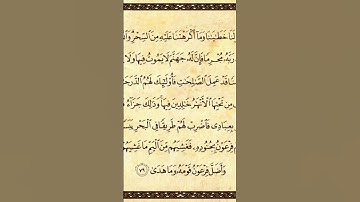 لَنَا خَطَٰيَٰنَا وَمَآ أَكْرَهْتَنَا عَلَيْهِ مِنَ ٱلسِّحْرِ
رَبَّهُۥ مُجْرِمًا فَإِنَّ لَهُۥ جَهَنَّمَ لَا يَمُوتُ فِيهَا وَلَا
قَدْ عَمِلَ ٱلصَّٰلِحَٰتِ فَأُو۟لَٰٓئِكَ لَهُمُ
مِن تَحْتِهَا ٱلْأَنْهَٰرُ خَٰلِدِينَ فِيهَا وَذَٰلِكَ جَزَآءُ
بِعِبَادِى فَٱضْرِبْ لَهُمْ طَرِيقًا فِى ٱلْبَحْرِ
فِرْعَوْنُ بِجُنُودِهِۦ فَغَشِيَهُم مِّنَ ٱلْيَمِّ مَا غَشِيَهُمْ
وَأَضَلَّ فِرْعَوْنُ قَوْمَهُۥ وَمَا هَدَىٰ ٧٩